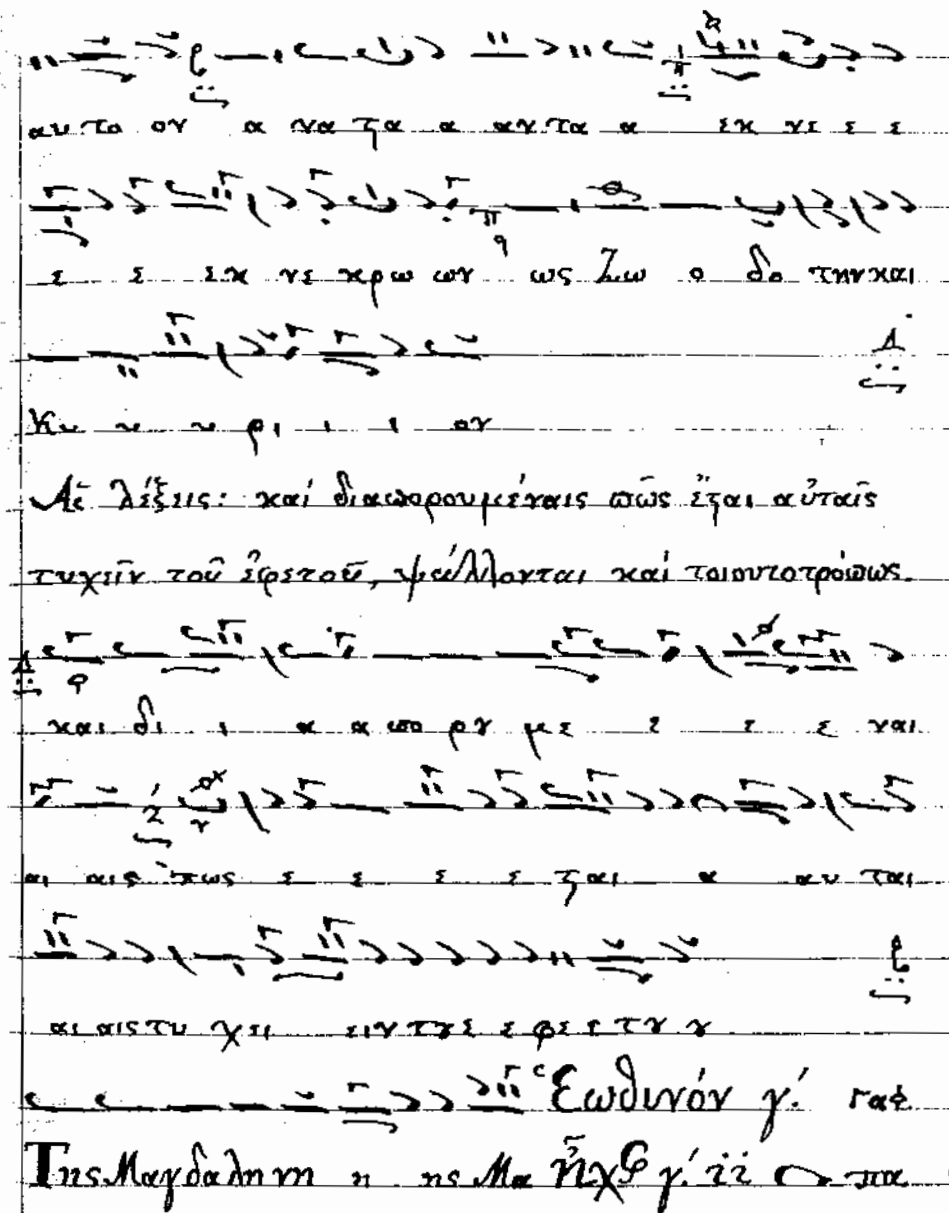 αυ το ον α να ϛα α αν τα α εκ νε ε ε
ε ε εκ νε κρω ων ως Ζω ο δο την και
Κυ υ υ ρι ι ι ον
Αἱ λέξεις: καί διαπορουμέναις πῶς ἔϛαι αὐταῖς
τυχεῖν τοῦ ἐφετοῦ, ψάλλονται καί τοιουτοτρόπως.
και δι ι α α πο ρȣ με ε ε ε ναι
αι αις πως ε ε ε ε ϛαι α αυ ται
αι αις τυ χει ειν τȣ ε ε φε ε τȣ ȣ
Ἑωθινόν γ΄.
Της Μαγδαληνη η ης Μα ἦχος γ΄. πα